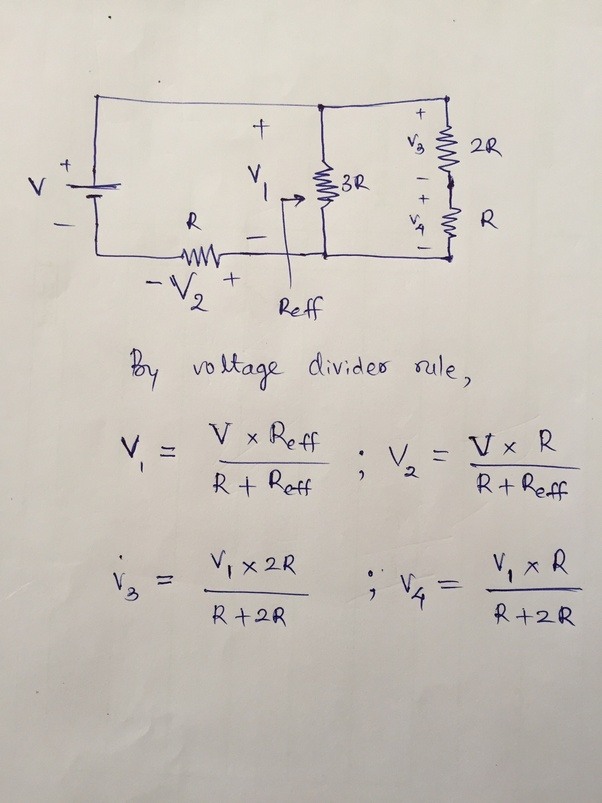 + + V3 2R
V + V1 3R -
+
- R - V4 R
- V2 + Reff -
By voltage divider rule,
V1 = V x Reff / R + Reff ; V2 = V x R / R + Reff
V3 = V1 x 2R / R + 2R ; V4 = V1 x R / R + 2R